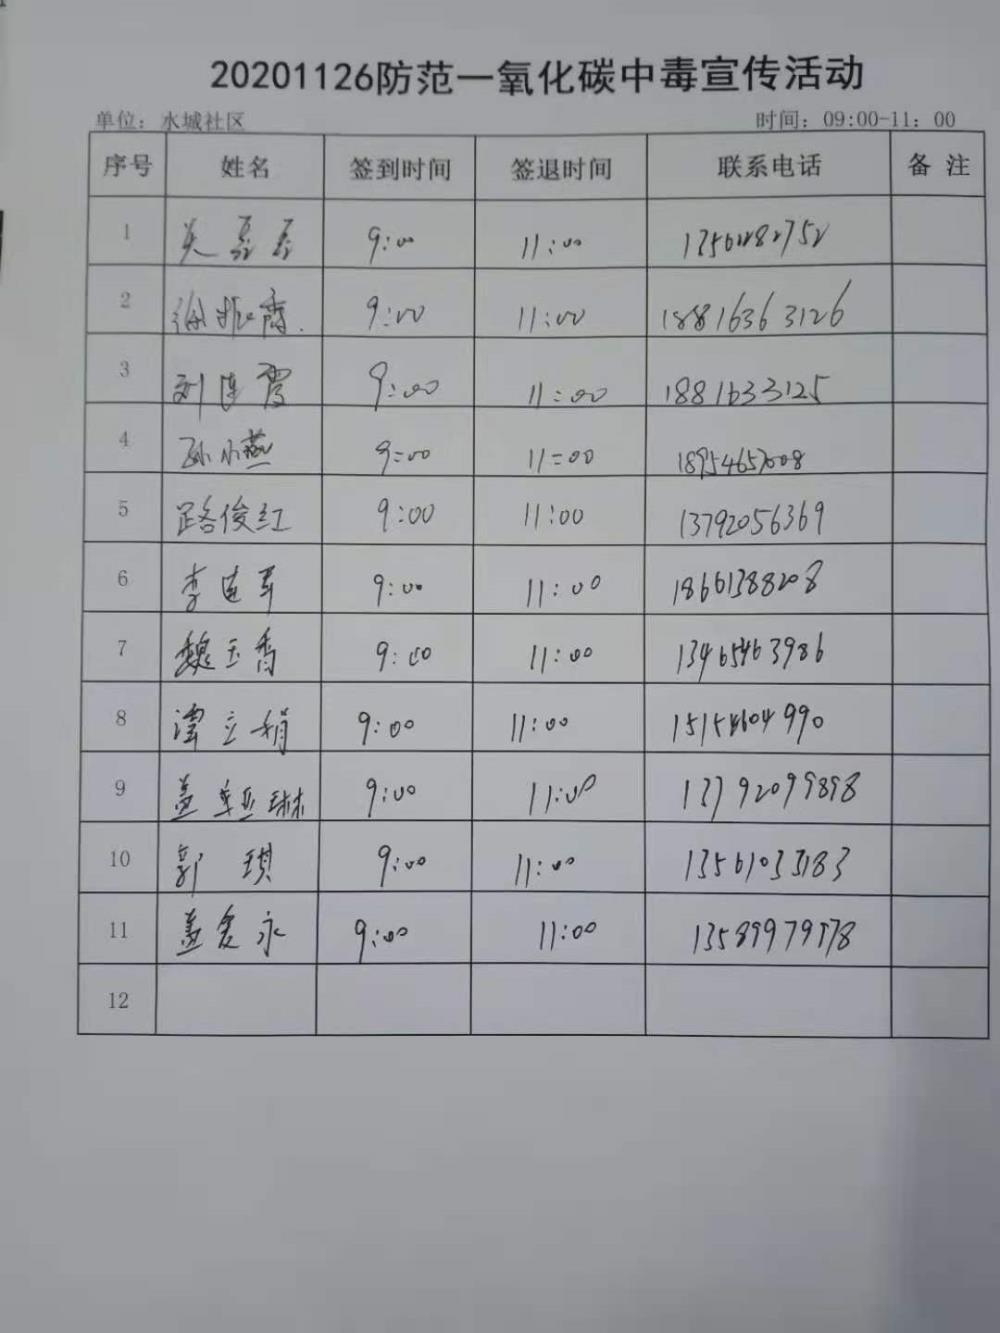 20201126防范一氧化碳中毒宣传活动
单位：水城社区 时间：09:00-11：00
序号 姓名 签到时间 签退时间 联系电话 备 注
1 关磊磊 9:00 11:00
2 9:00 11:00 18816363126
3 刘连霞 9:00 11:00 1881633125
4 孙小燕 9:00 11:00
5 路俊红 9:00 11:00 13792056369
6 李连军 9:00 11:00 18661388208
7 魏玉香 9:00 11:00 13465463986
8 谭立娟 9:00 11:00 15154604990
9 盖亚琳 9:00 11:00 13792099898
10 郭琪 9:00 11:00 13561033183
11 盖爱永 9:00 11:00 13589979978
12